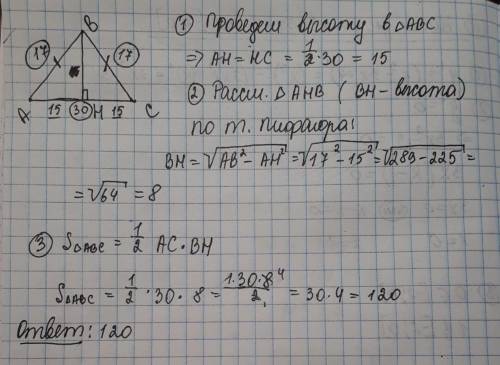 B
17 17
A 15 30 H 15 C
① Проведем высоту в △ABC
⇒ AH = HC = 1/2 · 30 = 15
② Рассм. △AHB (BH - высота)
по т. Пифагора:
BH = √(AB² - AH²) = √(17² - 15²) = √(289 - 225) =
= √64 = 8
③ S△ABC = 1/2 AC · BH
S△ABC = 1/2 · 30 · 8 = (1·30·8⁴)/2₁ = 30·4 = 120
Ответ: 120